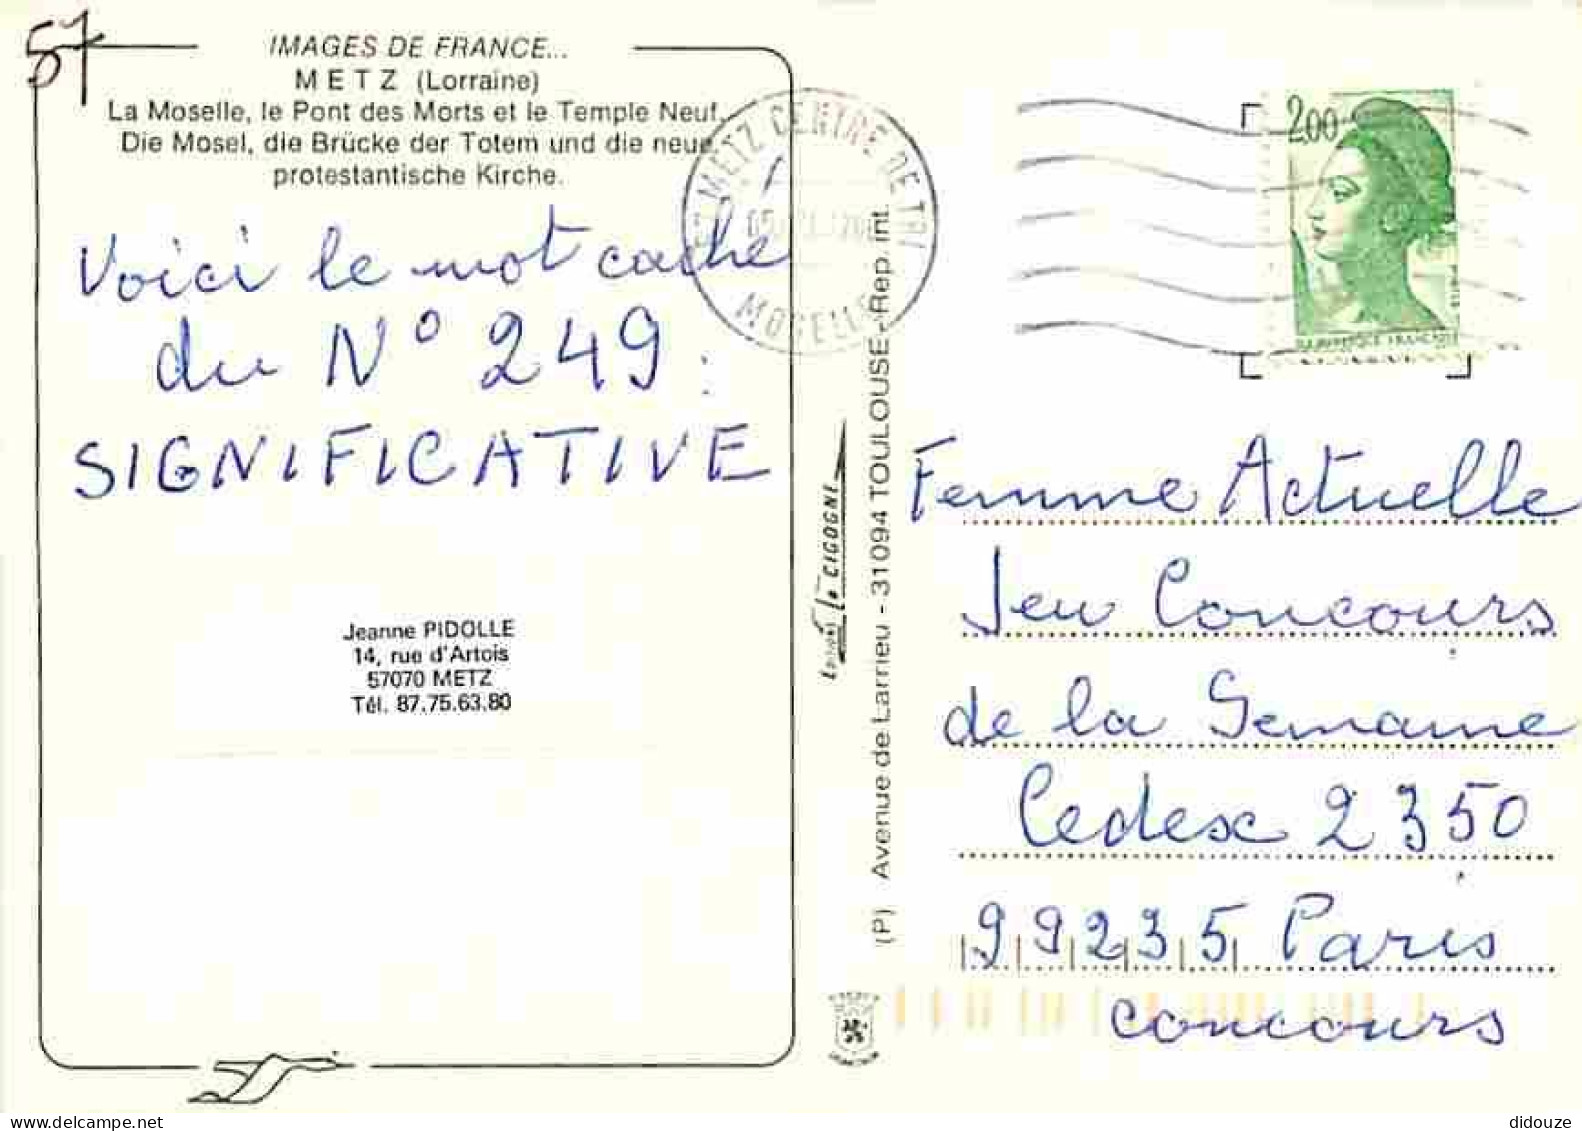 57
IMAGES DE FRANCE...
METZ (Lorraine)
La Moselle, le Pont des Morts et le Temple Neuf.
Die Mosel, die Brücke der Totem und die neue
protestantische Kirche.
Voici le mot caché
du N° 249 :
SIGNIFICATIVE
Jeanne PIDOLLE
14, rue d'Artois
57070 METZ
Tél. 87.75.63.80
57 METZ CENTRE DE TRI
MOSELLE
EDITIONS la CIGOGNE
(P) Avenue de Larrieu - 31094 TOULOUSE - Rep. int.
2,00
REPUBLIQUE FRANÇAISE
Femme Actuelle
Jeu Concours
de la Semaine
Cedex 2350
99235 Paris
concours
didouze